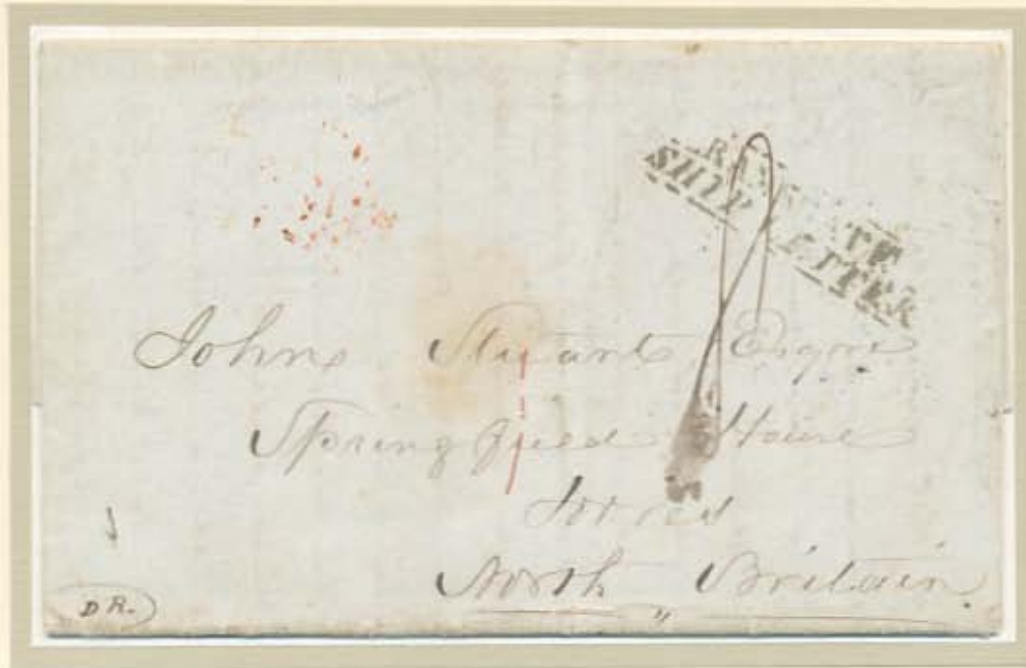 RAMSGATE
SHIP LETTER
John Stuart Esqre
Springfield House
Forres
North Britain
DR.